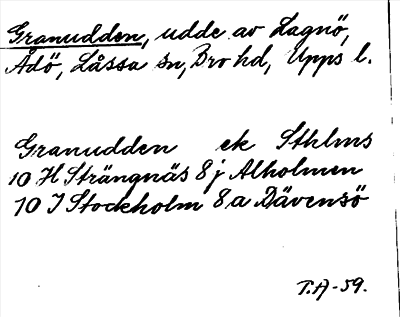 Granudden, udde av Lagnö,
Ådö, Låssa sn, Bro hd, Upps l.
Granudden ek Sthlms
10 H Strängnäs 8 j Alholmen
10 I Stockholm 8 a Dävensö
T.A-59.